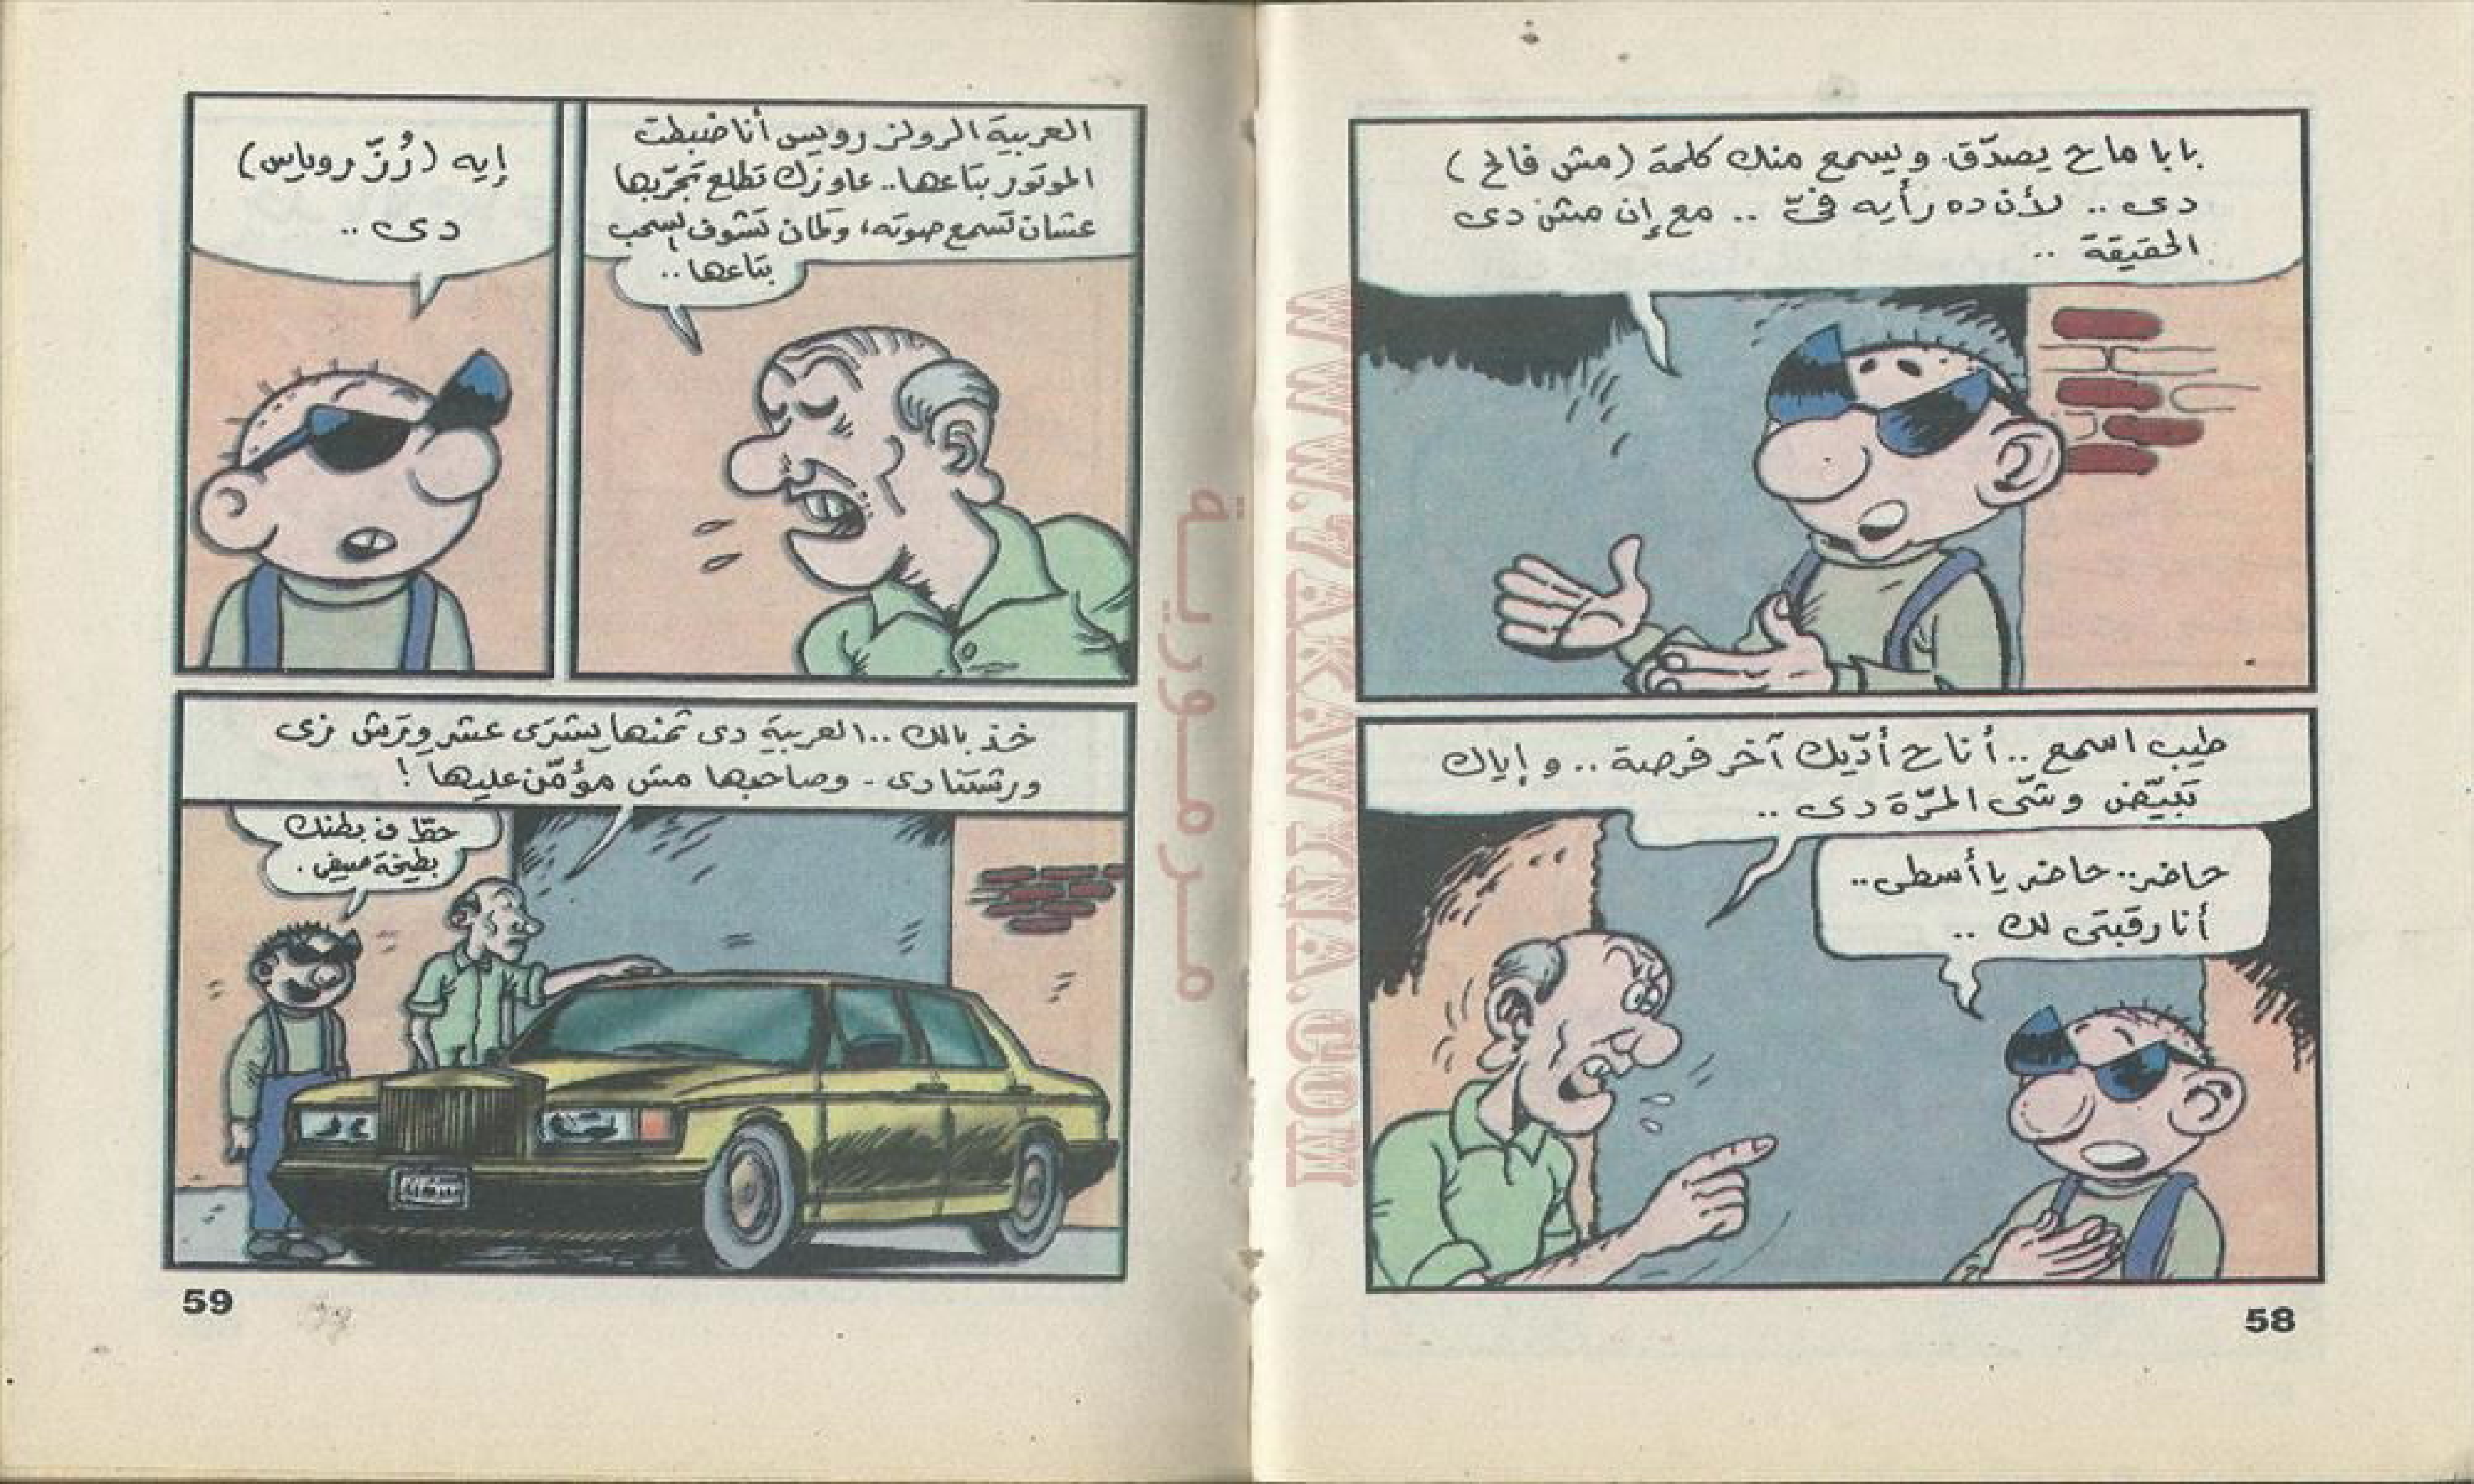 بابا ماح يصدّق ويسمع منك كلمة (مش فالح)
دى .. لأن ده رأيه فىّ .. مع إن مش دى
الحقيقة ..
طيب اسمع .. أنا ح أدّيك آخر فرصة .. و إياك
تبيّض وشّى المرّة دى ..
حاضر .. حاضر يا أسطى ..
أنا رقبتى لك ..
58
العربية الرولز رويس أنا ضبطت
الموتور بتاعها .. عاوزك تطلع تجرّبها
عشان تسمع صوته، وكمان تشوف السحب
بتاعها ..
إيه (رُزّ روياس)
دى ..
خذ بالك .. العربية دى ثمنها يشترى عشر ورش زى
ورشتنا دى - وصاحبها مش مؤمّن عليها !
حطّ فى بطنك
بطيخة صيفى .
59
مرمورية
WWW.ARAWINA.COM